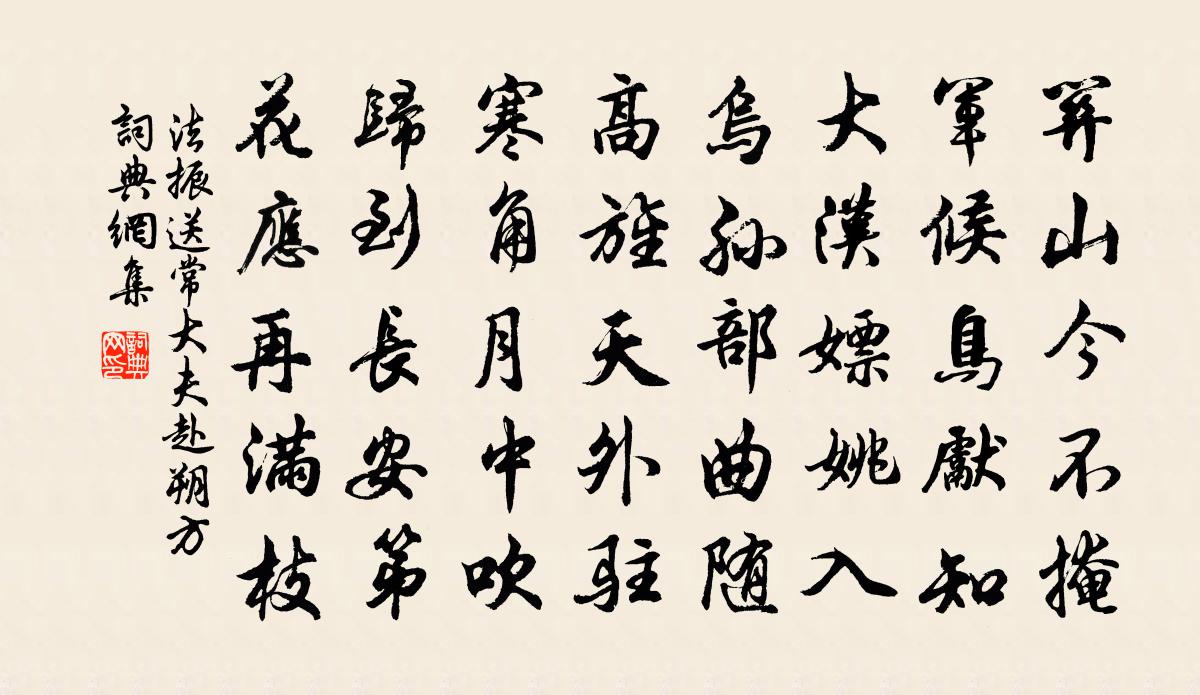 關山今不掩
軍候鳥獻知
大漢嫖姚入
烏孫部曲随
高旌天外駐
寒角月中吹
歸到長安第
花應再滿枝
法振送常大夫赴朔方
詞典網集
詞典
网印